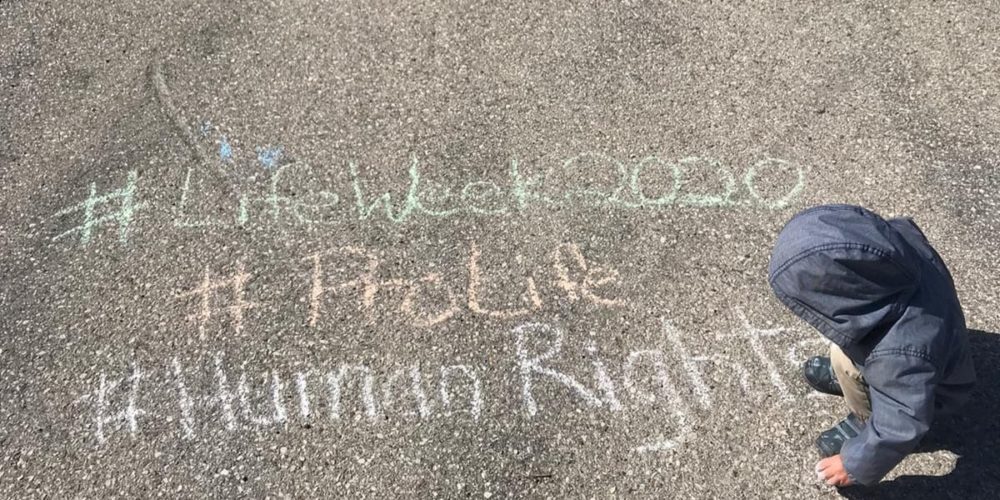 #LifeWeek2020
#ProLife
#Human Rights